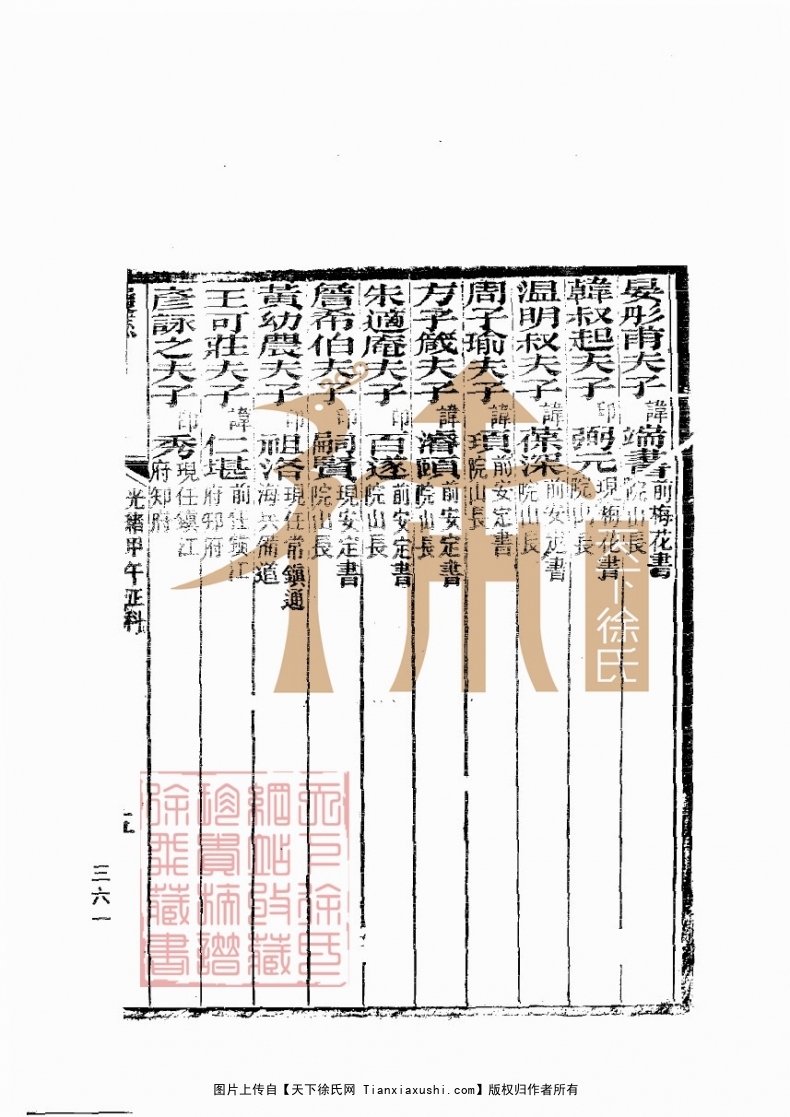 晏彤甫夫子 諱 端書 前梅花書院山長
韓叔起夫子 印 弼元 現梅花書院山長
温明叔夫子 諱 葆深 前安定書院山長
周子瑜夫子 諱 頊 前安定書院山長
方子箴夫子 諱 濬頤 前安定書院山長
朱適庵夫子 印 百遂 前安定書院山長
詹希伯夫子 印 嗣賢 現安定書院山長
黃幼農夫子 印 祖洛 現任常鎮通海兵備道
王可莊夫子 諱 仁堪 前任鎮江府知府
彥詠之夫子 印 秀 現任鎮江府知府
光緒甲午正科
三六一
天下徐氏
图片上传自【天下徐氏网 Tianxiaxushi.com】版权归作者所有